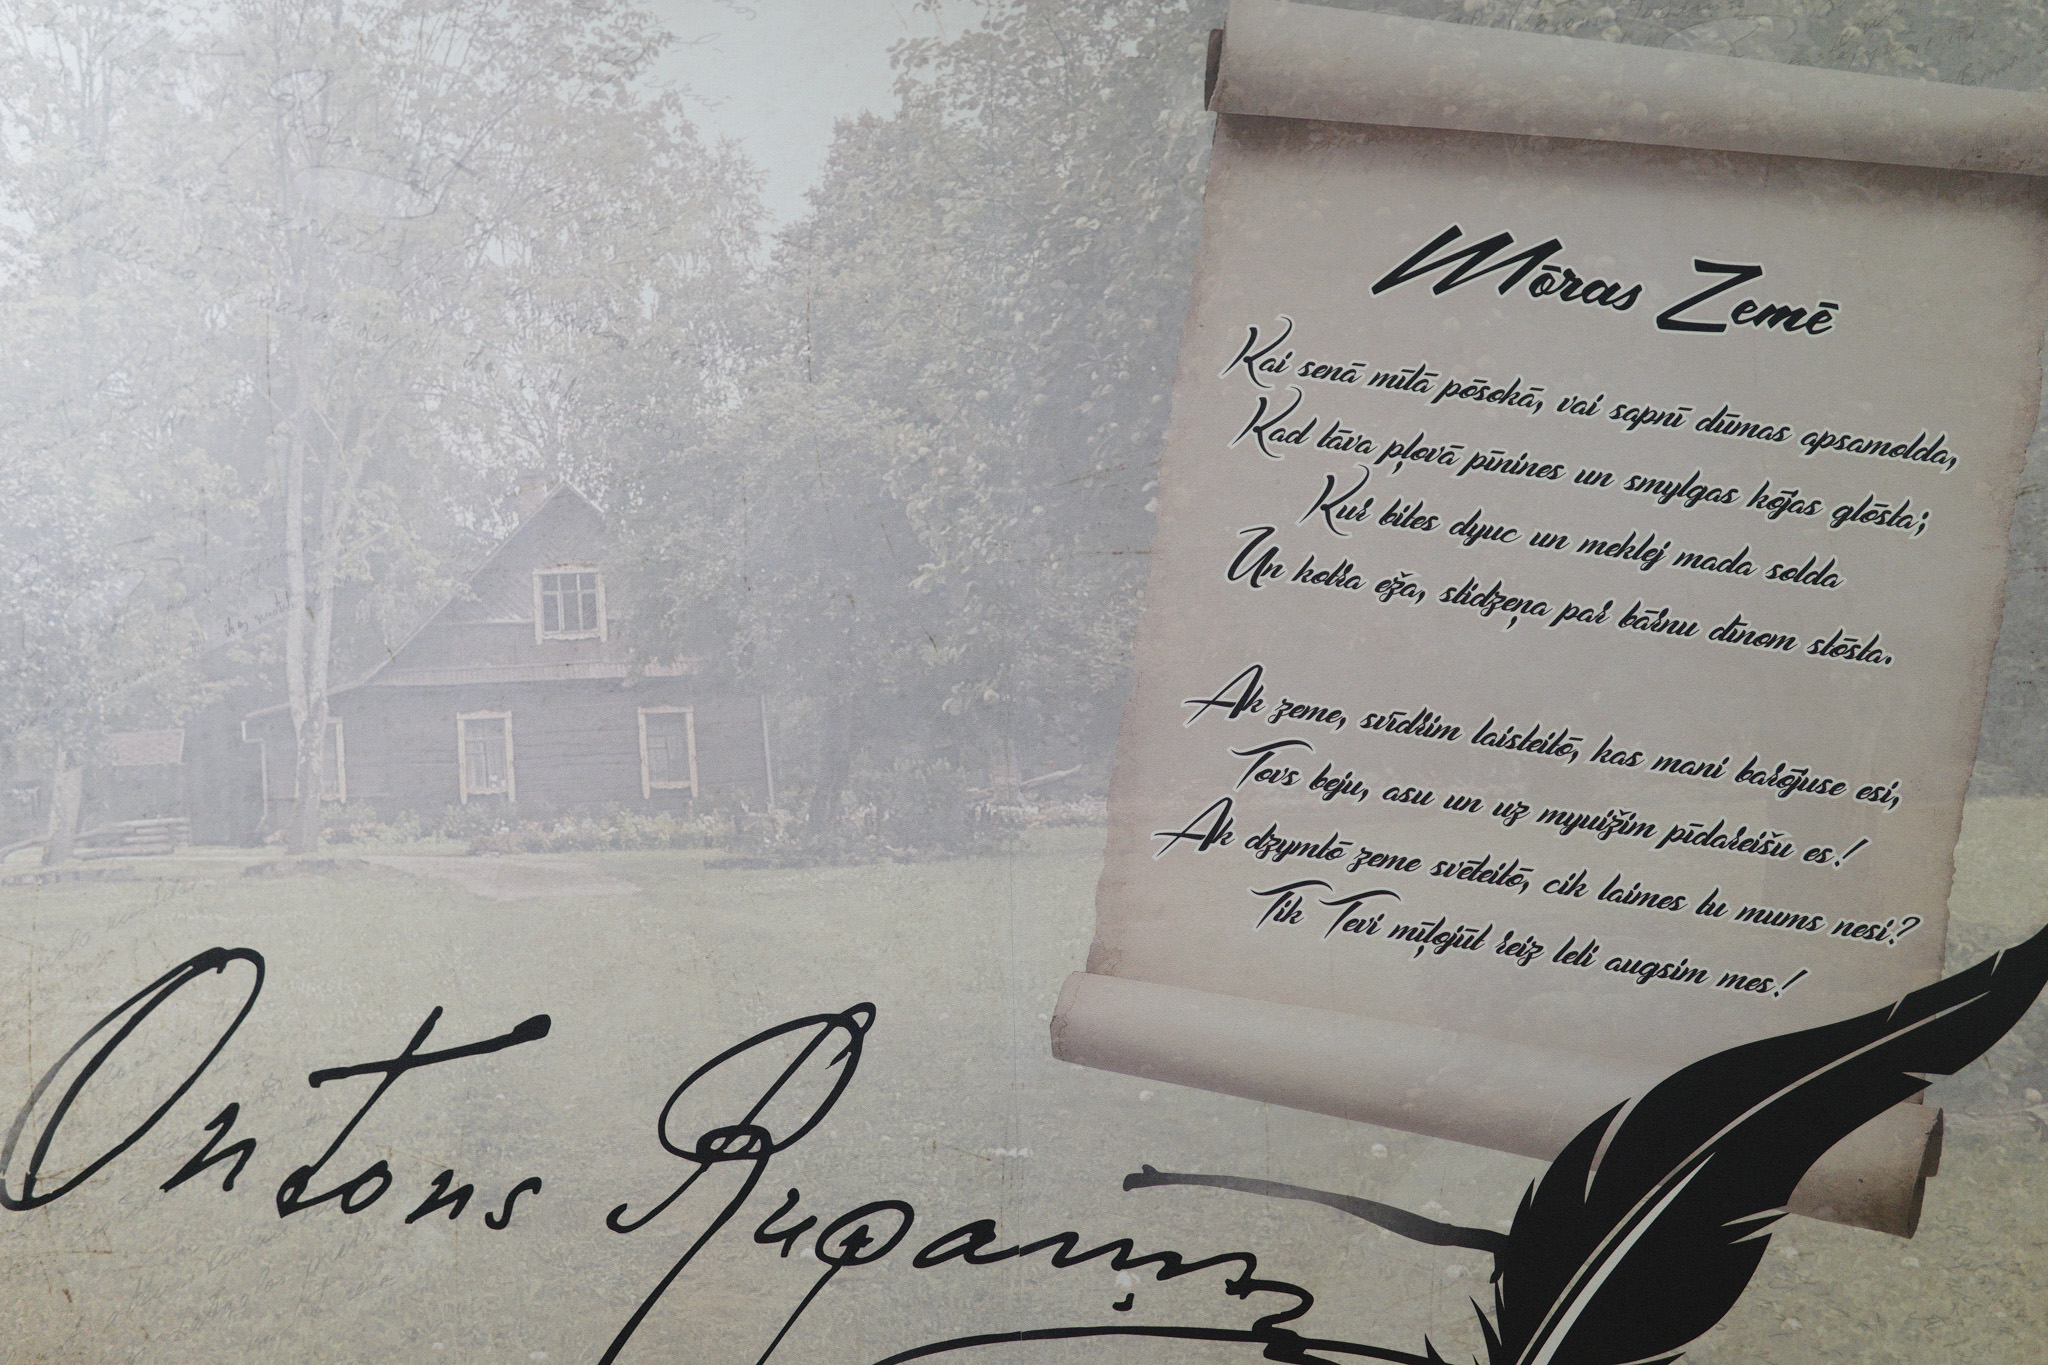 Mōras Zemē
Kai senā mītā pōsokā, vai sapnī dūmas apsamolda,
Kad tāva pļovā pīnines un smylgas kōjas glōsta;
Kur bites dyuc un meklej mada solda
Un kotra eža, stidzeņa par bārnu dīnom stōsta.
Ak zeme, svīdrim laisteitō, kas mani barōjuse esi,
Tovs beju, asu un uz myuižim pīdareišu es!
Ak dzymtō zeme svēteitō, cik laimes tu mums nesi?
Tik Tevi mīļojūt reiz leli augsim mes!
Ontons Rupaiņs